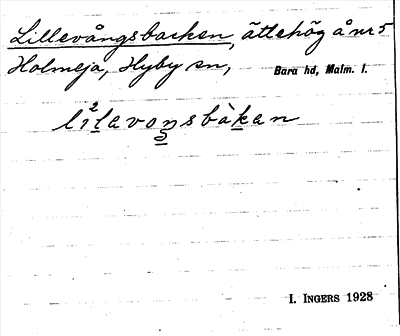 Lillevångsbacken, ättehög å nr 5
Holmeja, Hyby sn, Bara hd, Malm. l.
li²lavoŋsbàkan
I. INGERS 1928